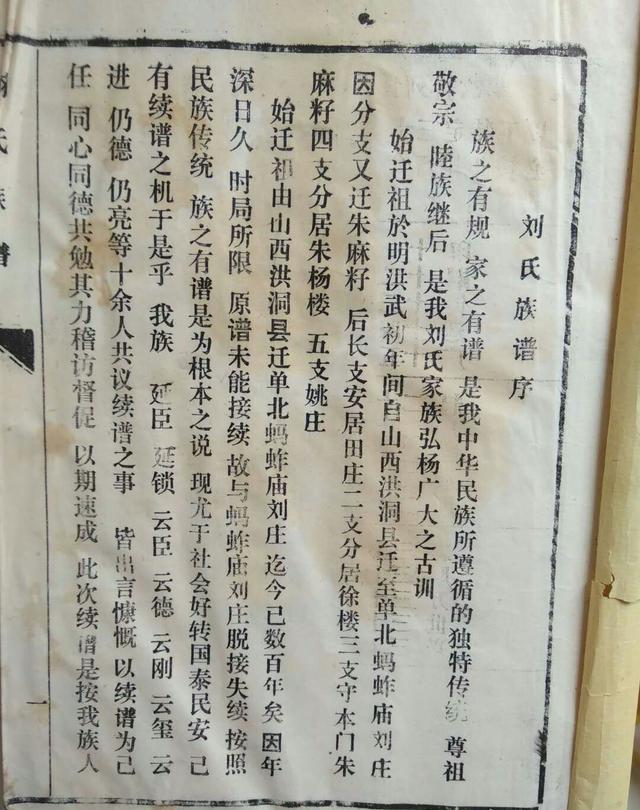 刘氏族谱序
族之有规 家之有谱 是我中华民族所遵循的独特传统 尊祖
敬宗 睦族继后 是我刘氏家族弘杨广大之古训
始迁祖於明洪武初年间自山西洪洞县迁至单北蚂蚱庙刘庄
因分支又迁朱麻籽 后长支安居田庄二支分居徐楼三支守本门朱
麻籽四支分居朱杨楼 五支姚庄
始迁祖由山西洪洞县迁单北蚂蚱庙刘庄 迄今己数百年矣 因年
深日久 时局所限 原谱未能接续 故与蚂蚱庙刘庄脱接失续 按照
民族传统 族之有谱是为根本之说 现尤于社会好转国泰民安 己
有续谱之机于是乎 我族 延臣 延锁 云臣 云德 云刚 云玺 云
进 仍德 仍亮等十余人共议续谱之事 皆出言慷慨 以续谱为己
任 同心同德共勉其力稽访督促 以期速成 此次续谱是按我族人
氏族谱
一